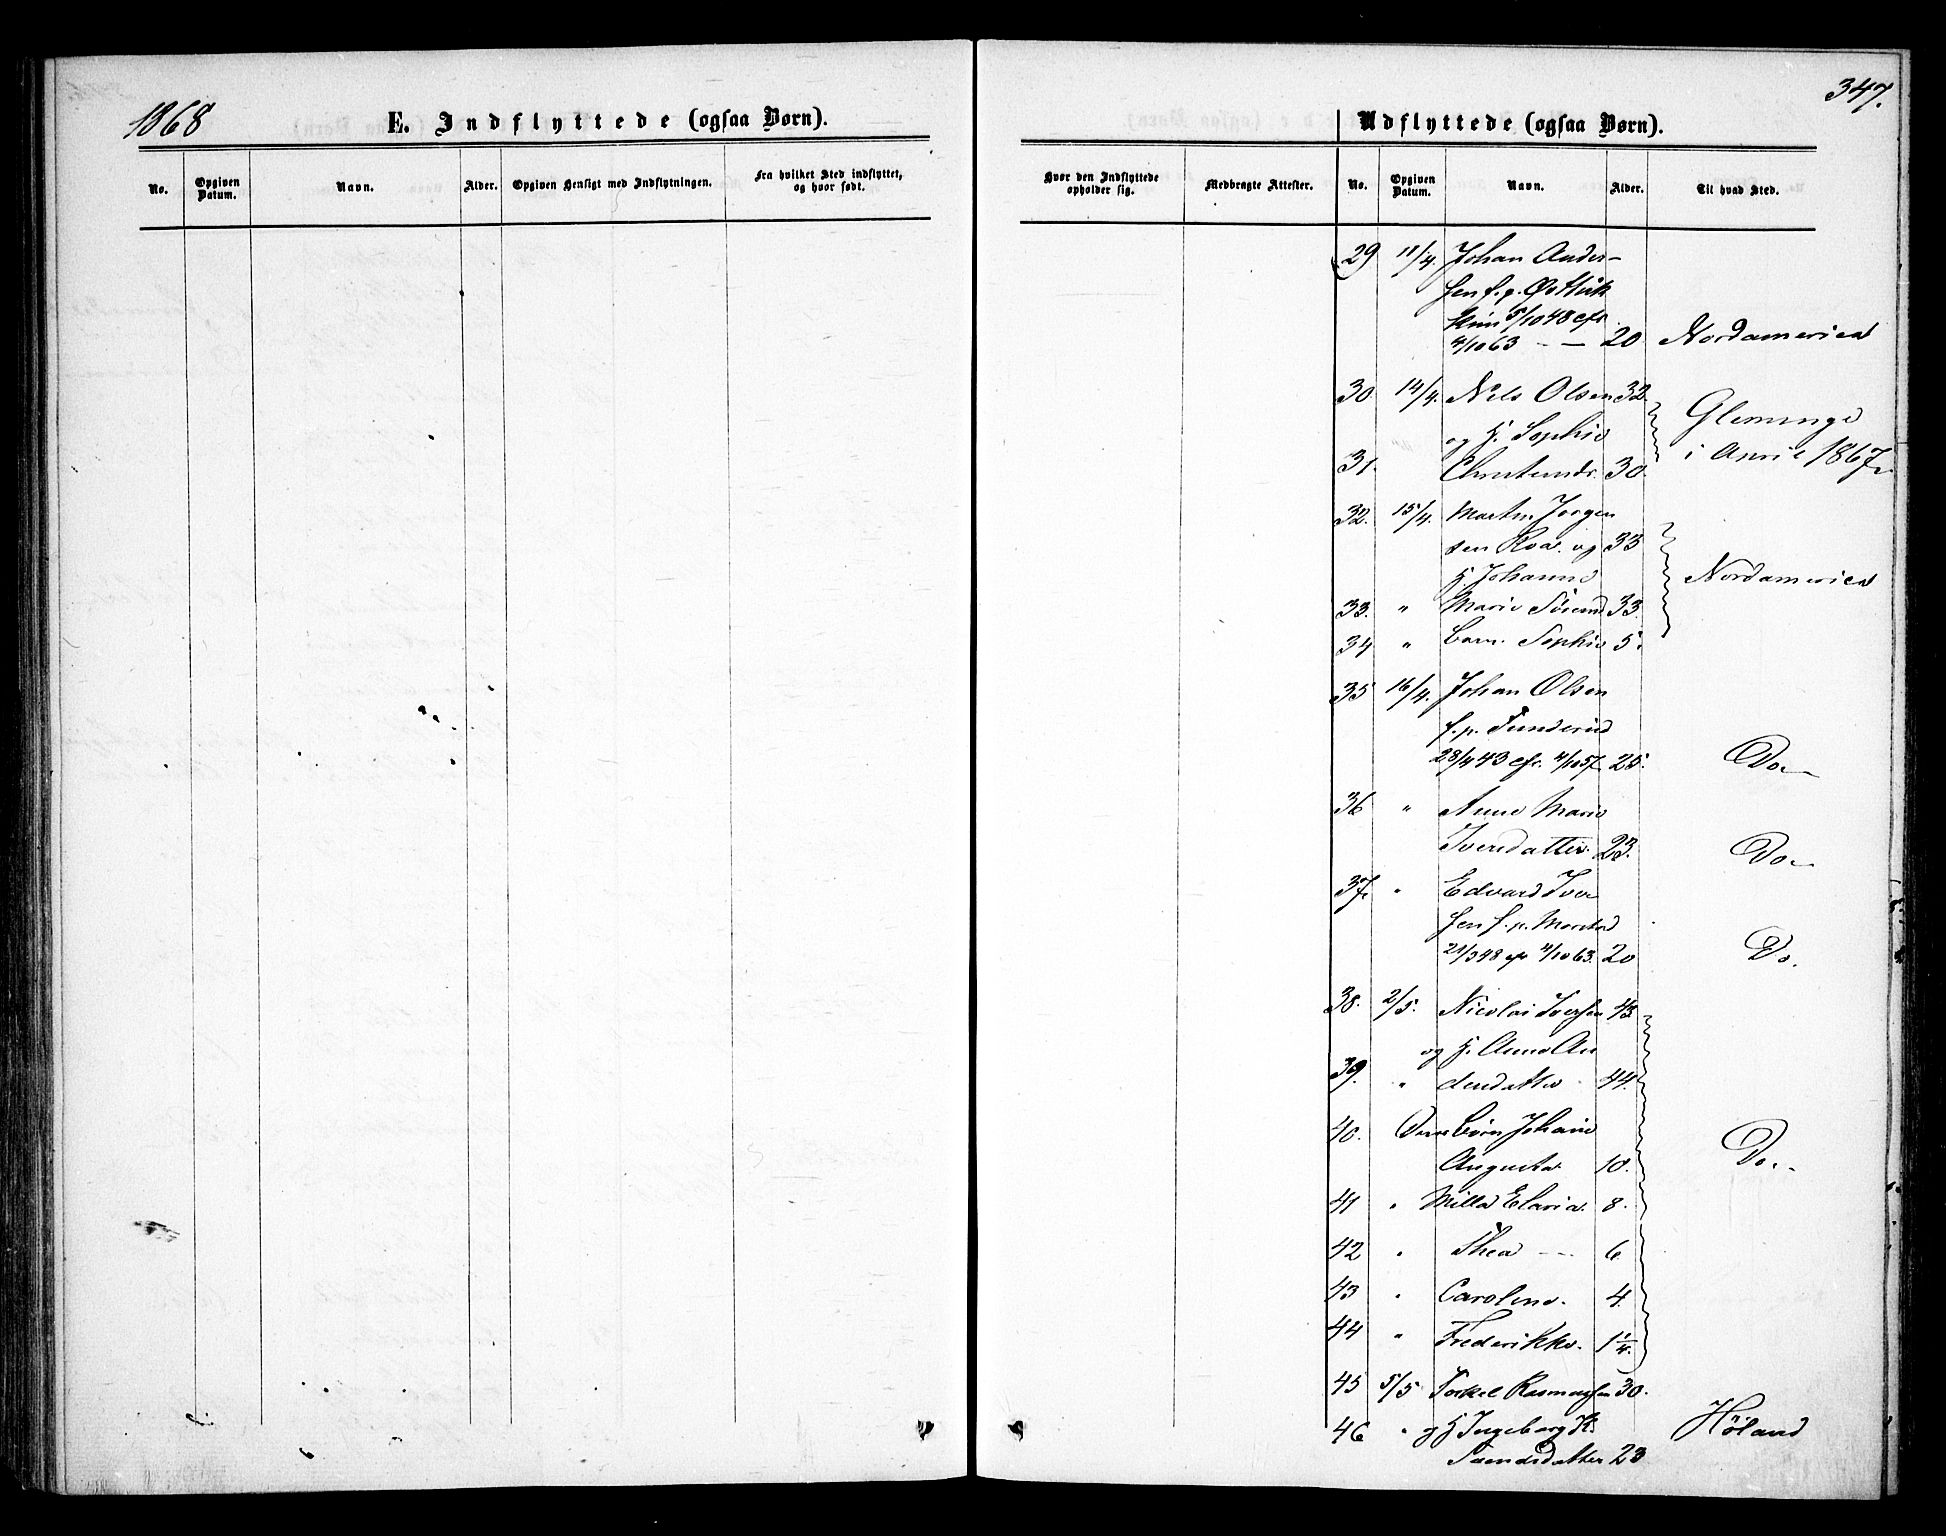 1868
E. Indflyttede (ogsaa Børn).
No.
Opgiven Datum.
Navn.
Alder.
Opgiven Hensigt med Indflytningen.
Fra hvilket Sted indflyttet, og hvor født.
347.
Udflyttede (ogsaa Børn).
Hvor den Indflyttede opholder sig.
Medbragte Attester.
No.
Opgiven Datum.
Navn.
Alder.
Til hvad Sted.
29 11/4. Johan Ander-
sen f. p.
5/10 48 cfr
4/10 63 - — 20 Nordamerica
30 14/4. Nels Olsen 32. Glemminge
og H. Sophie
31. 30. i April 1867.
32. 15/4. Martin Jörgen
sen og 33
H. Johanne Nordamerica
33. " Marie 33.
34 " Barn. Sophie 5.
35 16/4. Johan Olsen
f. p.
28/4 43 cfr. 4/10 57 25. Do.-
36 " Anne Marie
Iversdatter. 23. Do.-
37. " Edvard Iver
sen f. p.
21/3 48 cfr 4/10 63. 20 Do.
38. 2/5. Nicolai Iversen 43.
og H. Anne An
39. " dersdatter 44.
40. Börn Johanne
Augusta 10. Do.-
41 " Milla Elaria. 8.
42 " Thea - - - 6
43 " Caroline. 4.
44 " Frederikke. 1 1/4.
45 5/5 Torkel Rasmussen 30.
46 " og H Ingeborg K. Höland
Svendsdatter 23